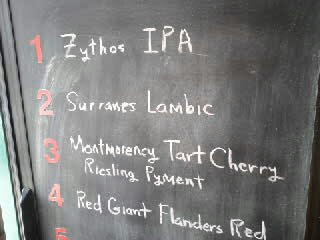 1 Zythos IPA
2 Surranes Lambic
3 Montmorency Tart Cherry
Riesling Pyment
4 Red Giant Flanders Red
5